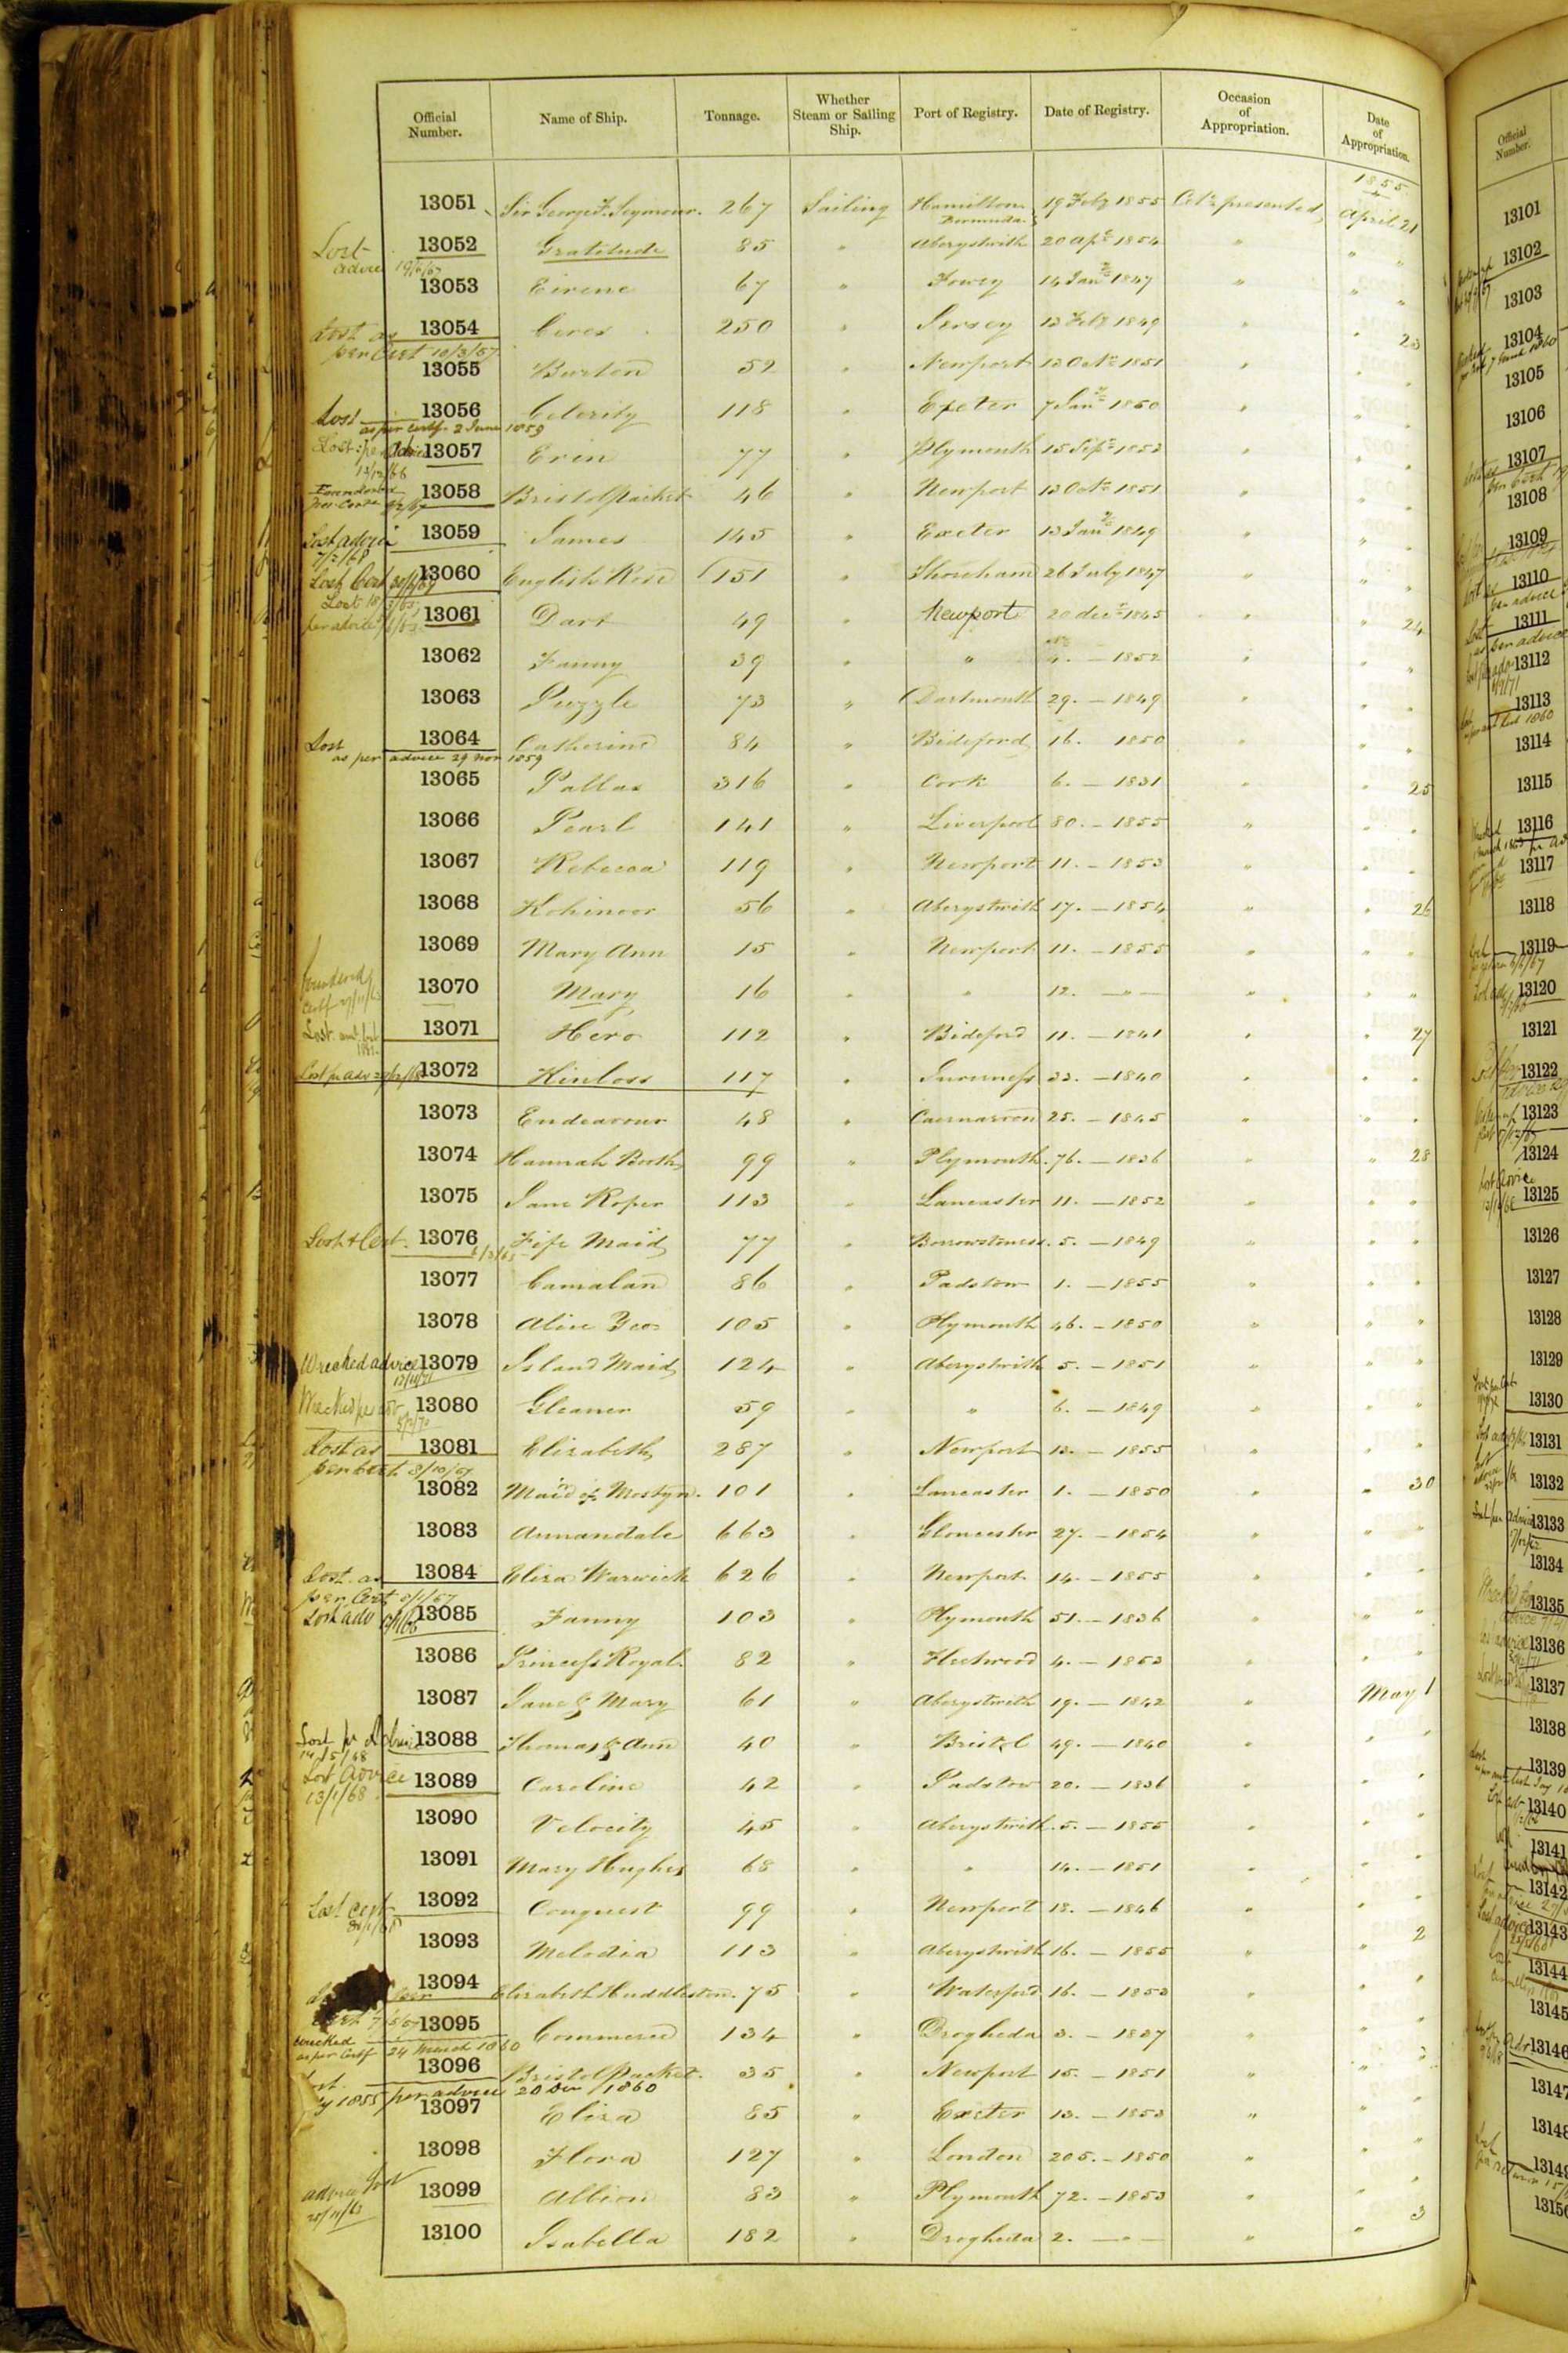 Official Number. Name of Ship. Tonnage. Whether Steam or Sailing Ship. Port of Registry. Date of Registry. Occasion of Appropriation. Date of Appropriation.
1855
13051 Sir George F. Seymour. 267 Sailing Hamilton Bermuda 19 Feby 1855 Cet's presented April 21
Lost advice 13052 Gratitude 85 " Aberystwith 20 Apl 1854 " " "
13053 Eirene 67 " Fowey 14 Jany 1847 " " "
Lost as per Cert 10/3/57 13054 Ceres 250 " Jersey 13 Feby 1849 " " 23
13055 Burton 52 " Newport 13 Octr 1851 " " "
Lost as per certf. 2 June 1859 13056 Celerity 118 " Exeter 7 Jany 1850 " " "
Lost per advice 13/12/66 13057 Erin 77 " Plymouth 15 Sepr 1852 " " "
13058 Bristol Packet 46 " Newport 13 Octr 1851 " " "
Lost advice 7/2/68 13059 James 145 " Exeter 13 Jany 1849 " " "
Lost Cert 13060 English Rose 151 " Shoreham 26 July 1847 " " "
Lost per advice 13061 Dart 49 " Newport 20 decr 1845 " " 24
13062 Fanny 39 " " No 4. — 1852 " " "
13063 Puzzle 73 " Dartmouth 29. — 1849 " " "
Lost as per advice 29 Nov 1859 13064 Catherine 84 " Bideford 16. 1850 " " "
13065 Pallas 316 " Cork 6. — 1831 " " 25
13066 Pearl 141 " Liverpool 80. — 1855 " " "
13067 Rebecca 119 " Newport 11. — 1853 " " "
13068 Kohinoor 56 " Aberystwith 17. — 1854 " " 26
13069 Mary Ann 15 " Newport 11. — 1855 " " "
Foundered Certf 13070 Mary 16 " " 12. — " — " " "
Lost 13071 Hero 112 " Bideford 11. — 1841 " " 27
Lost pr adv 13072 Kinloss 117 " Inverness 33. — 1840 " " "
13073 Endeavour 48 " Caernarvon 25. — 1845 " " "
13074 Hannah Booth 99 " Plymouth. 76. — 1836 " " 28
13075 Jane Roper 113 " Lancaster 11. — 1852 " " "
Lost & Cert. 13076 Fife Maid 77 " Borrowstoness. 5. — 1849 " " "
13077 Camalan 86 " Padstow 1. — 1855 " " "
13078 Alice Yeo 105 " Plymouth 46. — 1850 " " "
Wrecked advice 13079 Island Maid 124 " Aberystwith 5. — 1851 " " "
Wrecked pr adv 13080 Gleaner 59 " " 6. — 1849 " " "
Lost as per cert 8/10/57 13081 Elizabeth 287 " Newport 13. — 1855 " " "
13082 Maid of Mostyn. 101 " Lancaster 1. — 1850 " " 30
13083 Annandale 663 " Gloucester 27. — 1854 " " "
Lost as per Cert 13084 Eliza Warwick 626 " Newport 14. — 1855 " " "
Lost adv 13085 Fanny 103 " Plymouth 51. — 1836 " " "
13086 Princess Royal. 82 " Fleetwood 4. — 1853 " " "
13087 Jane & Mary 61 " Aberystwith 19. — 1842 " May 1
Lost pr advice 14/5/68 13088 Thomas & Ann 40 " Bristol 49. — 1840 " " "
Lost Advice 13/1/68 13089 Caroline 42 " Padstow 20. — 1836 " " "
13090 Velocity 45 " Aberystwith. 5. — 1855 " " "
13091 Mary Hughes 68 " " 14. — 1851 " " "
Lost cert 13092 Conquest 99 " Newport 18. — 1846 " " "
13093 Melodia 113 " Aberystwith 16. — 1855 " " 2
13094 Elizabeth Huddleston. 75 " Waterford 16. — 1853 " " "
wrecked as per Certf 24 March 1860 13095 Commerce 134 " Drogheda 3. — 1837 " " "
1855 per advice 20 Dec 1860 13096 Bristol Packet. 35 " Newport 15. — 1851 " " "
13097 Eliza 85 " Exeter 13. — 1853 " " "
13098 Flora 127 " London 205. — 1850 " " "
advice lost 13099 Albion 83 " Plymouth 72. — 1853 " " "
13100 Isabella 182 " Drogheda 2. — " — " " 3
Official Number.
13101
13102
13103
13104
13105
13106
13107
13108
13109
13110
13111
13112
13113
13114
13115
13116
13117
13118
13119
13120
13121
13122
13123
13124
13125
13126
13127
13128
13129
13130
13131
13132
13133
13134
13135
13136
13137
13138
13139
13140
13141
13142
13143
13144
13145
13146
13147
13148
13149